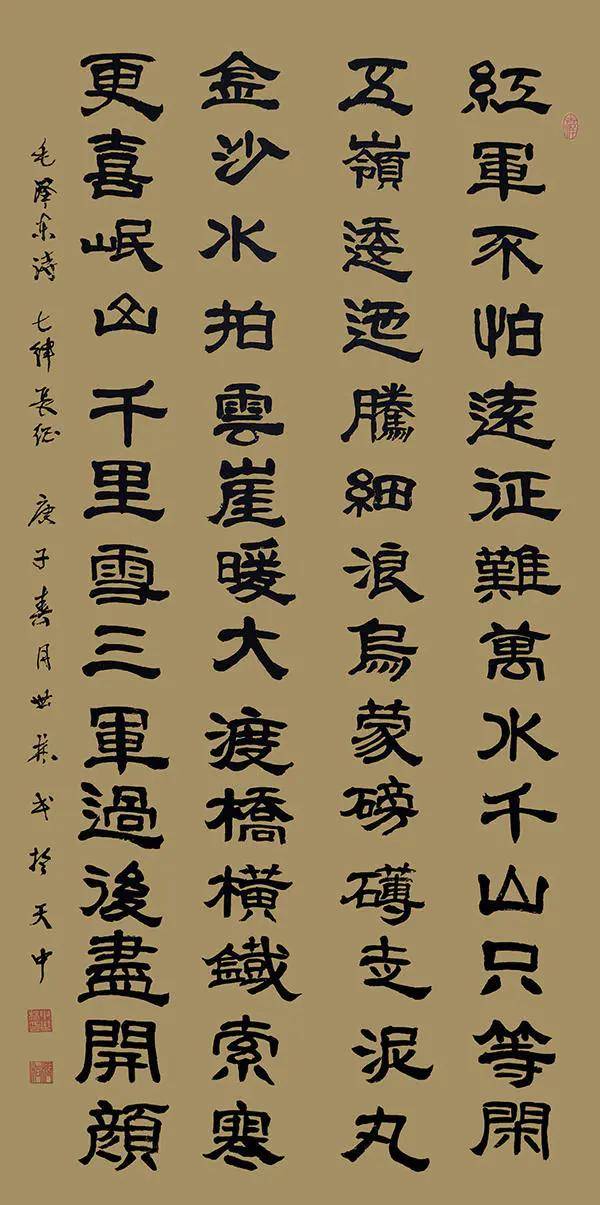 紅軍不怕遠征難萬水千山只等閑
五嶺逶迤騰細浪烏蒙磅礴走泥丸
金沙水拍雲崖暖大渡橋橫鐵索寒
更喜岷山千里雪三軍過後盡開顔
毛澤东詩 七律長征 庚子春月世 於天中